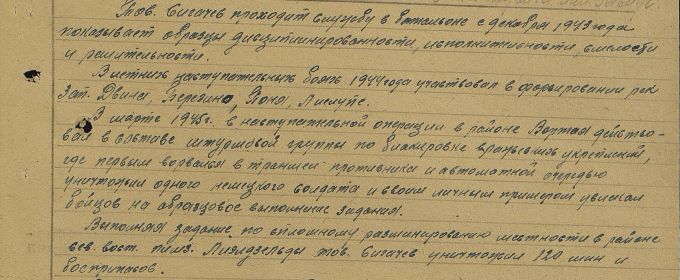 Тов. Сигачев проходит службу в батальоне с декабря 1943 года
показывает образцы дисциплинированности, исполнительности, смелости
и решительности.
В летних наступательных боях 1944 года участвовал в форсировании рек
Зап. Двина, Березина,
В марте 1945 г. в наступательной операции в районе действо-
вал в составе штурмовой группы по блокировке вражеских укреплений,
где первым ворвался в траншеи противника и автоматной очередью
уничтожил одного немецкого солдата и своим личным примером увлекал
бойцов на образцовое выполнение задания.
Выполняя задание по сплошному разминированию местности в районе
сев. вост. тов. Сигачев уничтожил 120 мин и
боеприпасов.